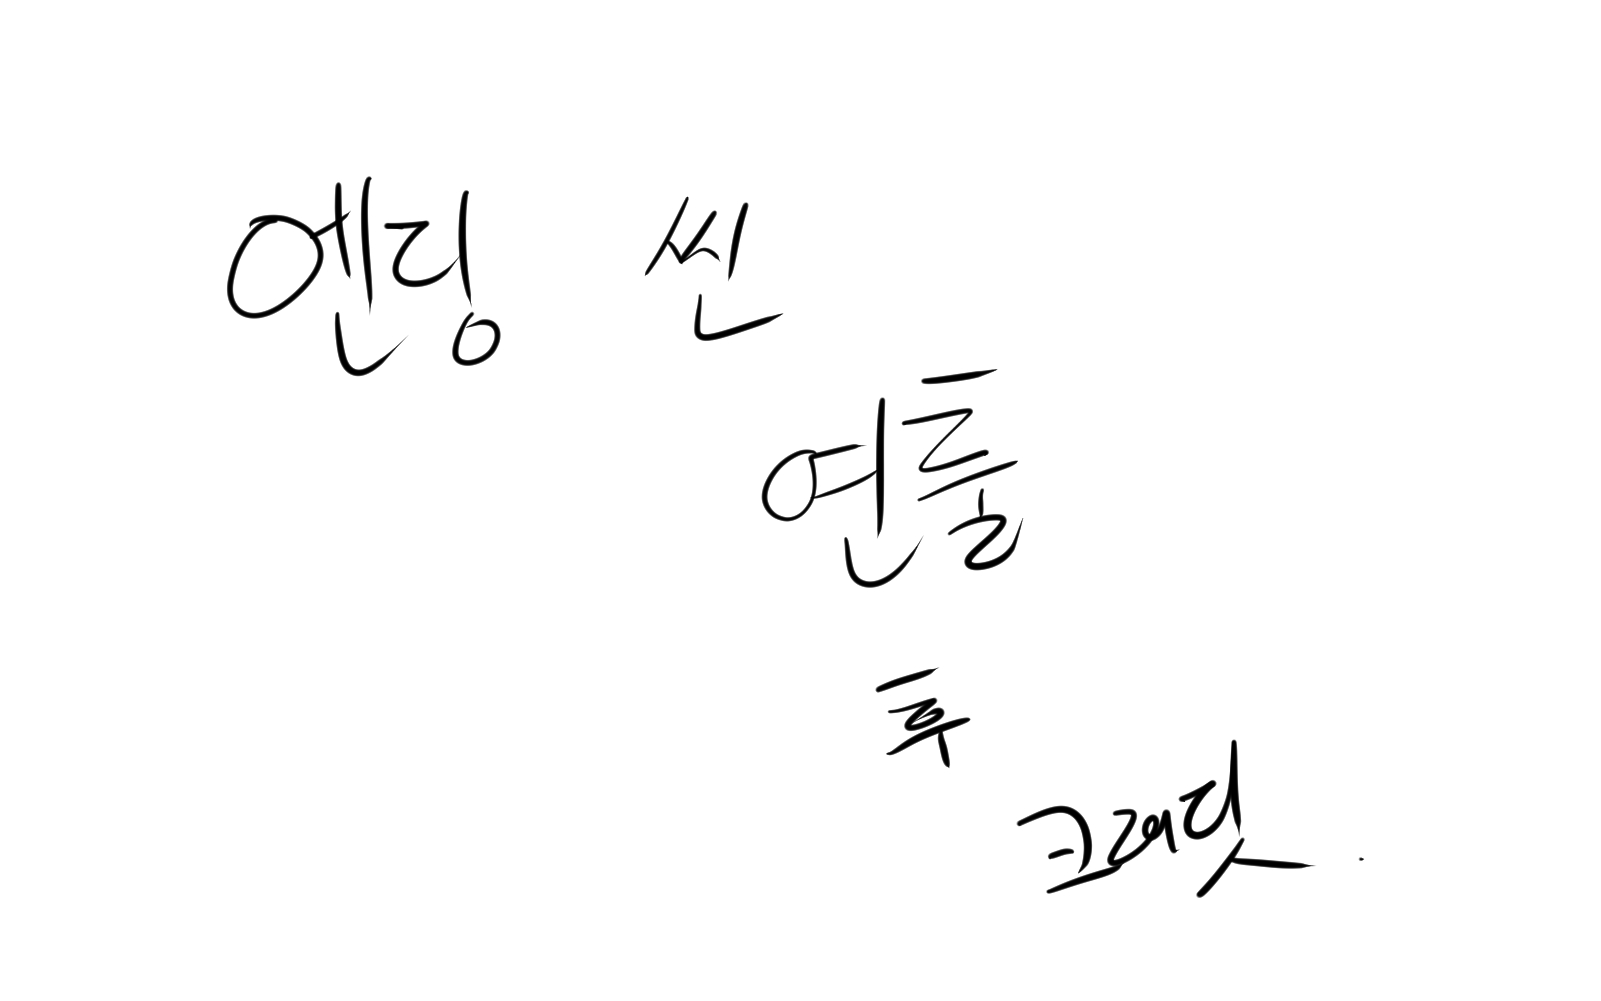 엔딩 씬
연출
후
크레딧.